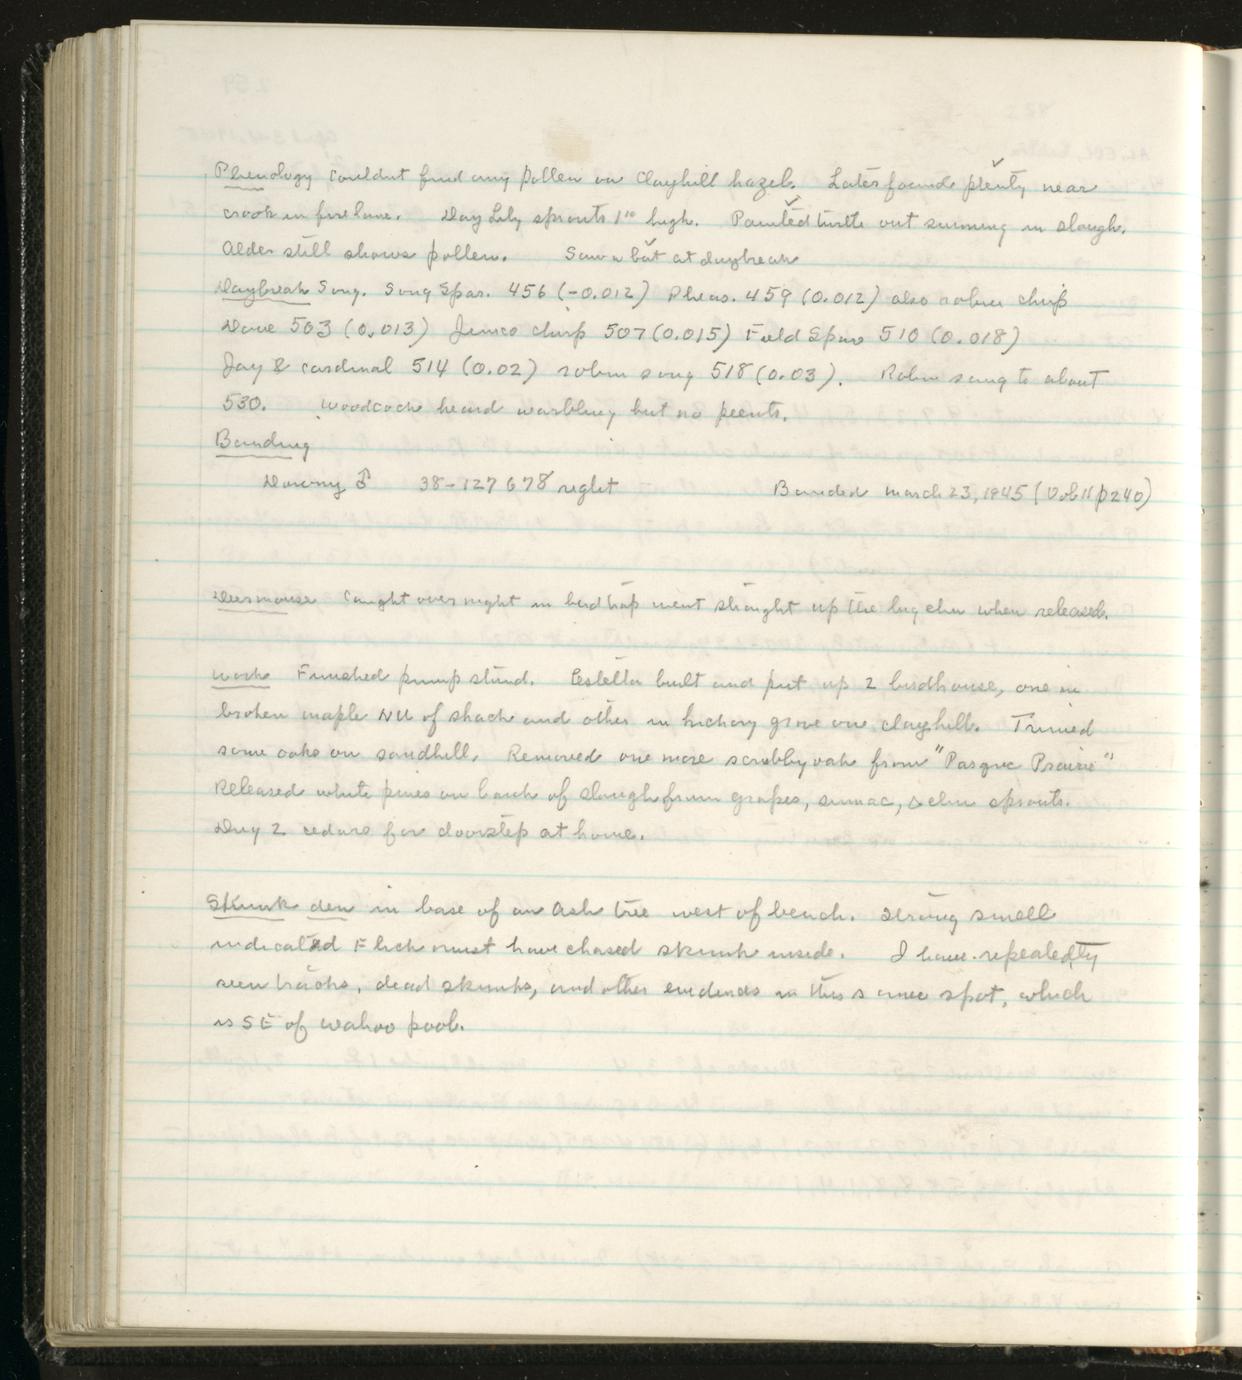 Phenology Couldnt find any pollen on Clayhill hazel. Later found plenty near
crook in fire lane. Day Lily sprouts 1" high. Painted turtle out sunning in slough.
Alder still shows pollen. Saw a bat at daybreak
Daybreak Song. Song Spar. 456 (-0.012) Pheas. 459 (0.012) also robin chirp
Dove 503 (0.013) Junco chirp 507 (0.015) Field Spar 510 (0.018)
Jay & cardinal 514 (0.02) robin song 518 (0.03). Robin sang to about
530. Woodcock heard warbling but no peents.
Banding
Downy ♂ 38-127678 right Banded March 23, 1945 (Vol II p240)
Deermouse Caught over night in birdtrap went straight up the big elm when released.
Work Finished pump stand. Estella built and put up 2 birdhouse, one in
broken maple NW of shack and other in hickory grove on clayhill. Trimed
some oaks on sandhill. Removed one more scrubby oak from "Pasque Prairie"
Released white pines on bank of slough from grapes, sumac, & elm sprouts.
Dug 2 cedars for doorstep at home.
Skunk den in base of an Ash tree west of bench. Strong smell
indicated Flick must have chased skunk inside. I have repeatedly
seen tracks, dead skunks, and other evidences in this same spot, which
is SE of wahoo pool.